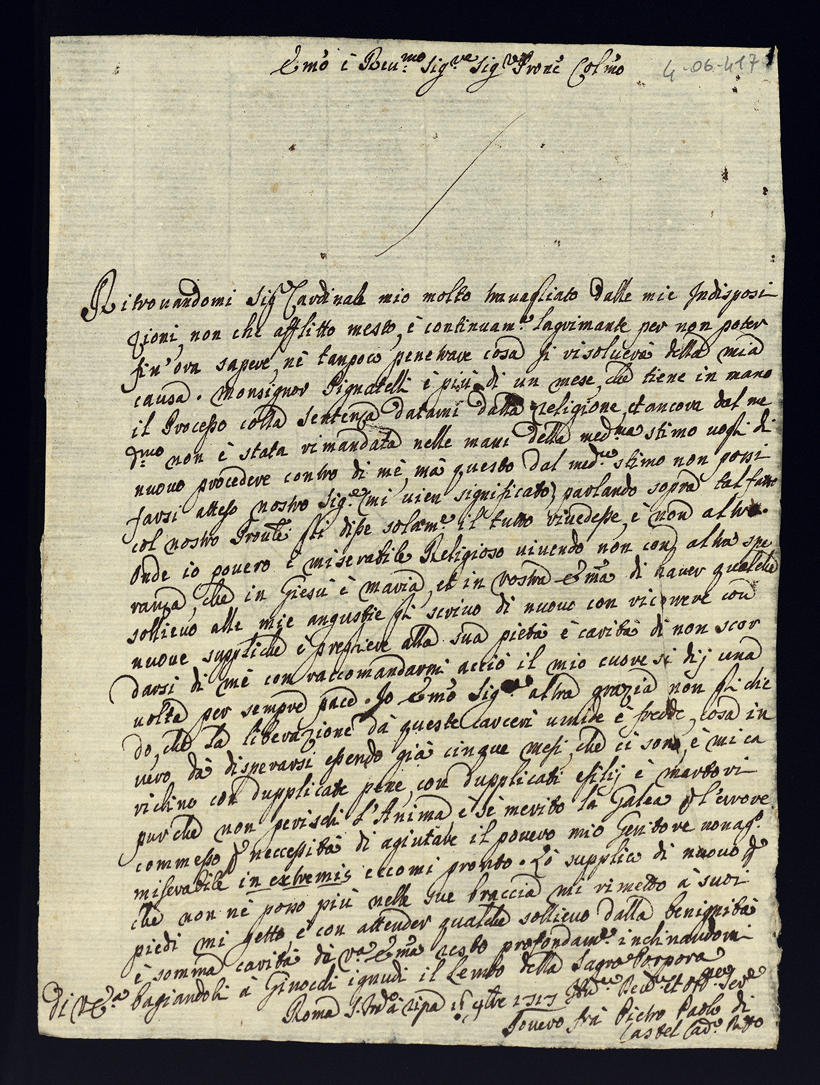 Emo e Reu.mo Sig.re Sig.re Prone Colmo
4-06-417
Ritrouandomi Sig.r Cardinale mio molto trauagliato dalle mie Indisposi
zioni, non che afflitto mesto, è continuam.te lagrimante per non poter
fin'ora sapere, nè tampoco penetrare cosa si risoluerà della mia
causa. Monsignor Pignatelli è più di un mese, che tiene in mano
il Processo colla sentenza datami dalla Religione, et ancora dal me
d.mo non è stata rimandata nelle mani della med.ma stimo uogli di
nuouo procedere contro di mè, mà questo dal med.mo stimo non possi
farsi atteso nostro Sig.re (mi uien significato) parlando sopra tal fatto
col nostro Pronle gli disse solam.te il tutto riuedesse, e non altro.
Onde io pouero è miserabile Religioso uiuendo non con altra spe
ranza, che in Giesù è Maria, et in Vostra Emza di hauer qualche
sollieuo alle mie angustie gli scriuo di nuouo con ricorrere con
nuoue suppliche è preghiere alla sua pietà è carità di non scor
darsi di mè con raccomandarmi acciò il mio cuore si dij una
uolta per sempre pace. Io Emo Sig.re altra grazia non gli chie
do, che la liberazione dà queste carceri umide è fredde, cosa in
uero dà disperarsi essendo già cinque mesi, che ci sono, è mi ca
richino con dupplicate pene, con dupplicati esilij è martori
purche non perischi l'Anima, e se merito la Galea p l'errore
commesso p necessità di agiutare il pouero mio Genitore nonag.o
miserabile in extremis eccomi pronto. Lo supplico di nuouo p
che non nè posso più nelle sue braccia mi rimetto à suoi
piedi mi getto, è con attender qualche sollieuo dalla benignità
è somma carità di V.a Emza resto profondam.te inchinandomi
di V.E.a bagiandoli à Ginocchi ignudi il Lembo della Sagra Porpora
Roma à ripa 7bre 1717
Pouero frà Pietro Paolo di
Castel